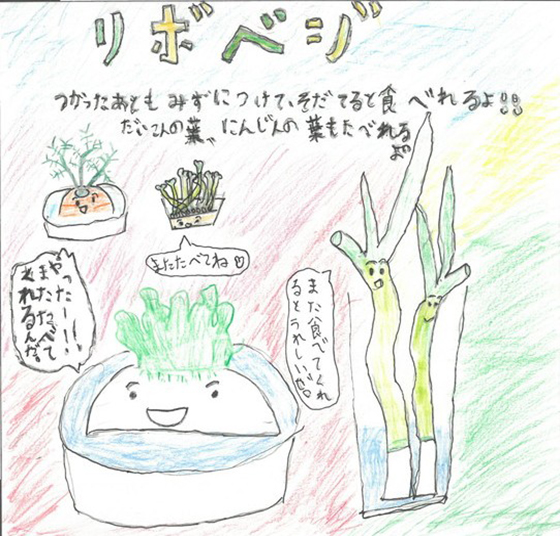 リボベジ
つかったあともみずにつけて、そだてると食べれるよ!!
だいこんの葉、にんじんの葉もたべれる
よ
またたべてね♡
やったー!!
またたべて
くれるんだ。
また食べてくれ
るとうれしいぜ。